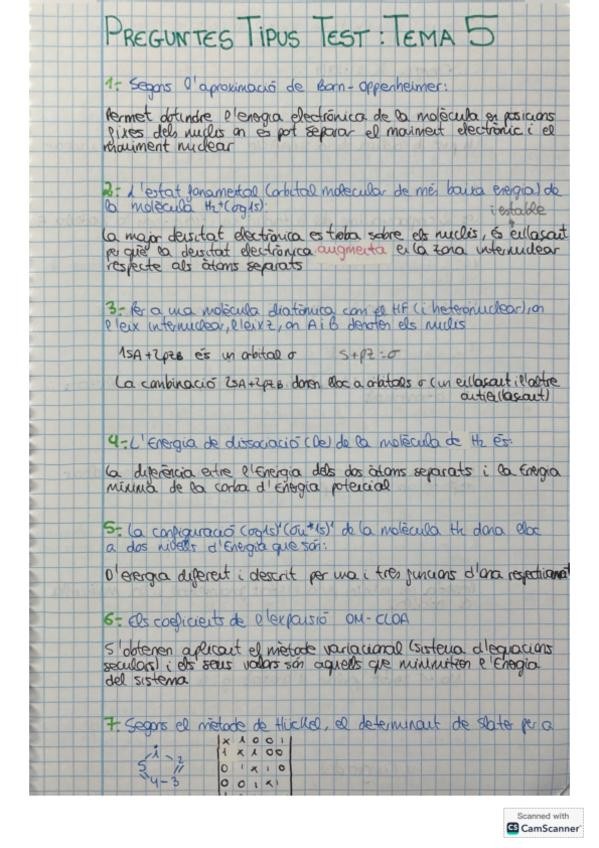 PREGUNTES TIPUS TEST: TEMA 5
1.- Segons l'aproximació de Born-Oppenheimer:
Permet obtindre l'energia electrònica de la molècula en posicions
fixes dels nuclis on es pot separar el moviment electrònic i el
moviment nuclear
2- L'estat fonamental (orbital molecular de més baixa energia) de
la molècula H₂⁺(σg1s):
i estable
La major densitat electrònica es troba sobre els nuclis, és enllaçant
perquè la densitat electrònica augmenta en la zona internuclear
respecte als àtoms separats
3.- Per a una molècula diatòmica com el HF (i heteronuclear), on
l'eix internuclear, l'eix z, on A i B denoten els nuclis
1sA+2pzB és un orbital σ s+pz=σ
La combinació 2sA+2pzB donen lloc a orbitals σ (un enllaçant i l'altre
antienllaçant)
4-L'Energia de dissociació (De) de la molècula de H₂ és:
La diferència entre l'Energia dels dos àtoms separats i la Energia
mínima de la corba d'Energia potencial
5- La configuració (σg1s)¹(σu*1s)¹ de la molècula H₂ dona lloc
a dos nivells d'Energia que són:
D'energia diferent i descrit per una i tres funcions d'ona respectivament
6- Els coeficients de l'expansió OM-CLOA
S'obtenen aplicant el mètode variacional (sistema d'equacions
seculars) i els seus valors són aquells que minimitzen l'Energia
del sistema
7- Segons el mètode de Hückel, el determinant de Slater per a
1
5 2
4-3
x 1 0 0 1
1 x 1 0 0
0 1 x 1 0
0 0 1 x 1
Scanned with
CS CamScanner